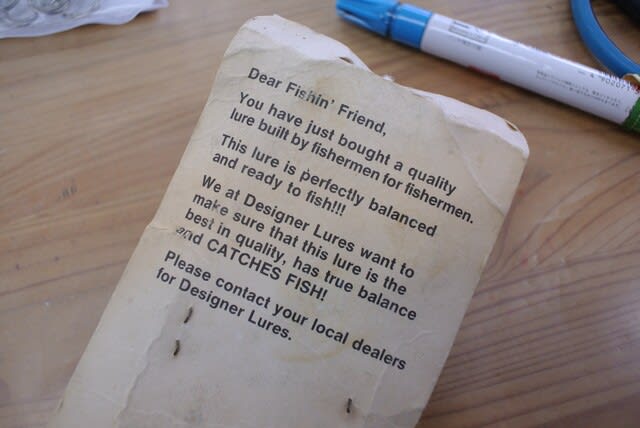 Dear Fishin' Friend,
You have just bought a quality
lure built by fishermen for fishermen.
This lure is perfectly balanced
and ready to fish!!!
We at Designer Lures want to
make sure that this lure is the
best in quality, has true balance
and CATCHES FISH!
Please contact your local dealers
for Designer Lures.